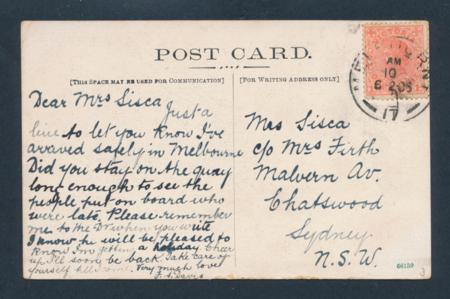 POST CARD.
[THIS SPACE MAY BE USED FOR COMMUNICATION]
[FOR WRITING ADDRESS ONLY]
Dear Mrs Sisca
Just a
line to let you know I've
arraved safely in Melbourne
Did you stay on the quay
long enough to see the
people put on board who
were late. Please remember
me to the Dr when you write
I know he will be pleased to
know I'm getting a holiday Cheer
up I'll soon be back. Take care of
yourself till I come. Very much love
Davis
Mrs Sisca
c/o Mrs Firth
Malvern Av.
Chatswood
Sydney
N.S.W.
AM
10
17
66159
3